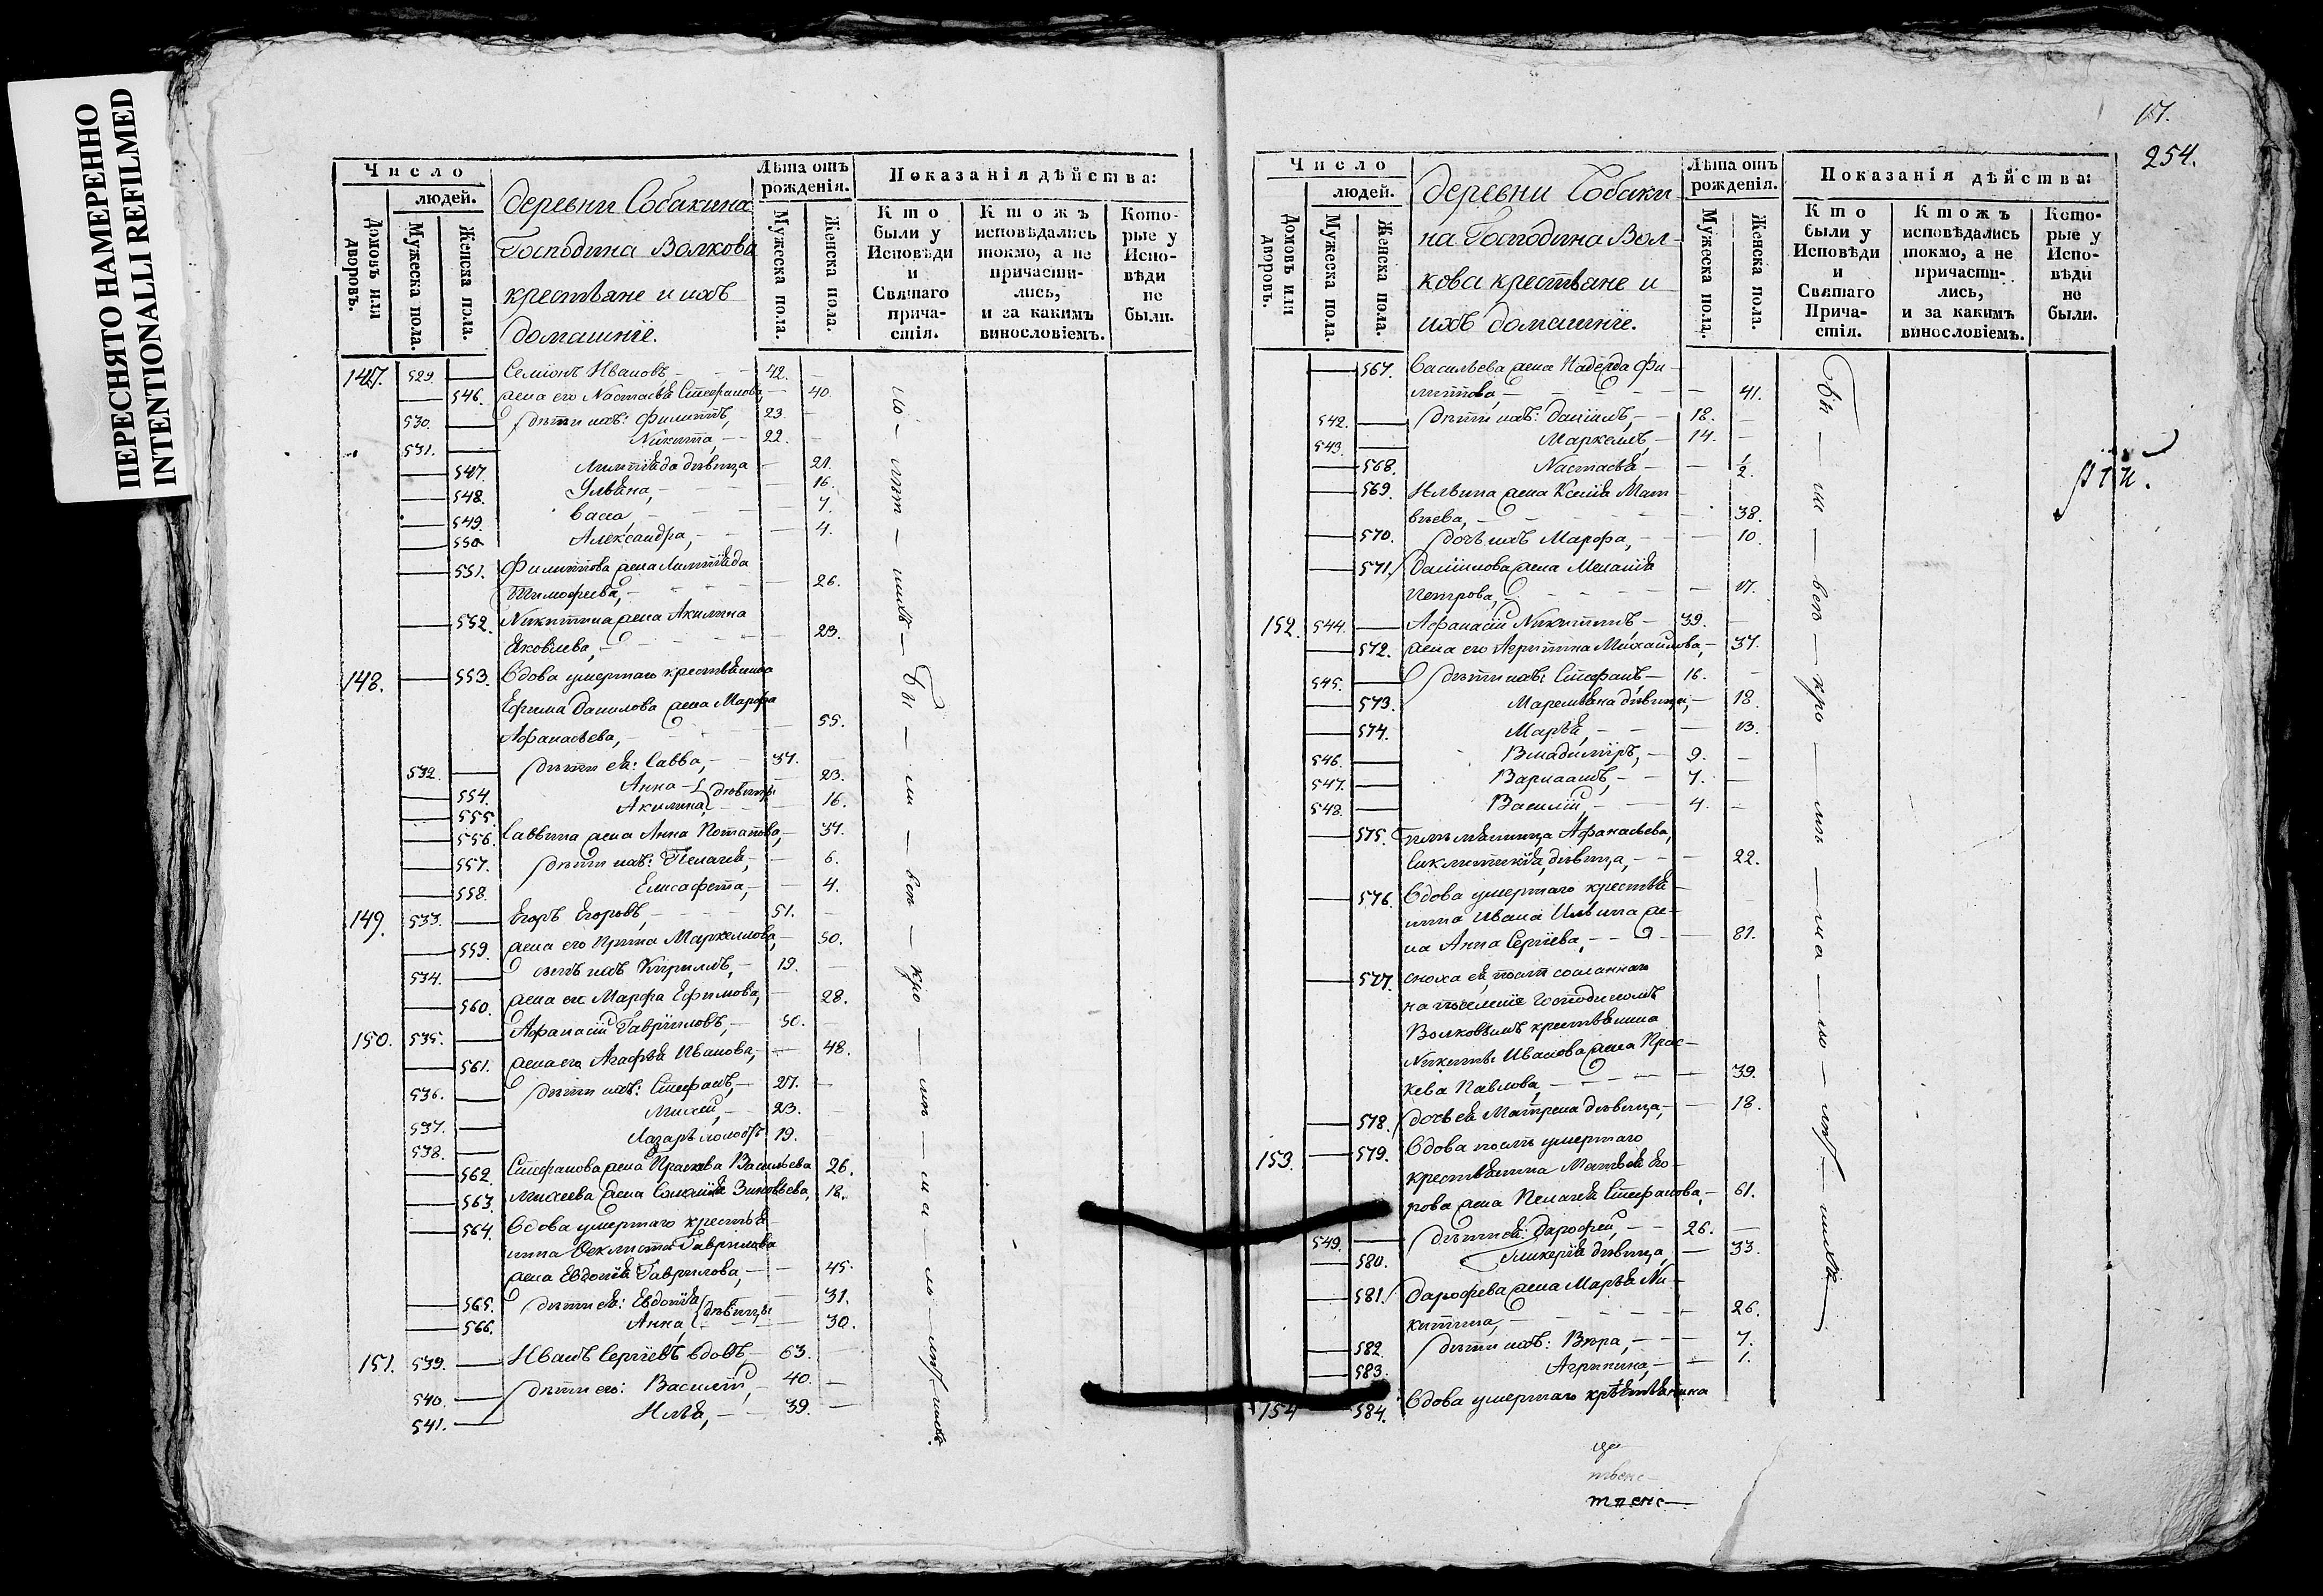 ПЕРЕСНЯТО НАМЕРЕННО
INTENTIONALLI REFILMED
Число
людей.
Домовъ или дворовъ.
Мужеска пола.
Женска пола.
деревни Собакина
Господина Волкова
крестьяне и ихъ
домашнїе.
Лѣта отъ рожденія.
Мужеска пола.
Женска пола.
Показанія дѣйства:
Кто были у Исповѣди и Святаго прича-стія.
Ктожъ исповѣдались токмо, а не причасти-лись, и за какимъ винословіемъ.
Кото-рые у Испо-вѣди не были.
147. 529. Семіонъ Ивановъ 42.
546. жена его Настасья Стефанова, 40.
530. дѣти ихъ: Филиппъ, 23.
531. Никита, 22.
547. Олимпіада дѣвица 21.
548. Ульяна, 16.
549. Васса, 7.
550 Александра, 4.
551. Филиппова жена Олимпіада
Тимофеева, 26.
552. Никитина жена Акилина
Яковлева, 23.
148. 553. Вдова умершаго крестьянина
Ефима Данилова жена Марфа
Афанасьева, 55.
532. дѣти ея: Савва, 37.
554. Анна 23.
дѣвицы
555. Акилина 16.
556. Саввина жена Анна Потапова, 37.
557. дѣти ихъ: Пелагея, 6.
558. Елисафета, 4.
149. 533. Егоръ Егоровъ, 51.
559. жена его Ирина Маркеллова, 50.
534. сынъ ихъ Кирилъ, 19.
560. жена ег. Марфа Ефимова, 28.
150. 535. Афанасій Гавриловъ, 50.
561. жена его Агафья Иванова, 48.
536. дѣти ихъ: Стефанъ, 27.
537. Михей, 23.
538. Лазарь холостъ 19.
562. Стефанова жена Прасковья Васильева 26.
563. Михеева жена Соломія Зиновьева, 18.
564. Вдова умершаго крестья-
нина Феклиста Гаврилова
жена Евдокія Гаврилова, 45.
565. дѣти ея: Евдокія 31.
дѣвицы
566. Анна 30.
151. 539. Иванъ Сергіевъ вдовъ 63.
540. дѣти его: Василій, 40.
541. Илья, 39.
17.
254.
Число
людей.
Домовъ или дворовъ.
Мужеска пола.
Женска пола.
деревни Собаки-
на Господина Вол-
кова крестьяне и
ихъ домашнїе.
Лѣта отъ рожденія.
Мужеска пола.
Женска пола.
Показанія дѣйства:
Кто были у Исповѣди и Святаго Прича-стія.
Ктожъ исповѣдались токмо, а не причасти-лись, и за какимъ винословіемъ.
Кото-рые у Испо-вѣди не были.
567. Васильева жена Надежда Фи-
липпова, 41.
542. дѣти ихъ: Даніилъ, 18.
543. Маркелъ, 14.
568. Настасья ½.
569. Ильина жена Ксенія Мат
вѣева, 38.
570. дочь ихъ Марфа, 10.
571. Даніилова жена Меланія
Петрова, 17.
152. 544. Афанасій Никитинъ 39.
572. жена его Агрипина Михайлова, 37.
545. дѣти ихъ: Стефанъ 16.
573. Маремьяна дѣвица, 18.
574. Марья, 13.
546. Владимїръ, 9.
547. Варлаамъ, 7.
548. Василій, 4.
575. племянница Афанасьева,
Синклитикія, дѣвица, 22.
576. Вдова умершаго крестья-
нина Ивана Ильина же-
на Анна Сергіева, 81.
577. сноха ея, послѣ сосланнаго
на поселеніе Господиномъ
Волковымъ крестьянина
Никиты Иванова жена Прас-
кева Павлова, 39.
578. дочь ея Матрена дѣвица, 18.
153. 579. Вдова послѣ умершаго
крестьянина Матвея Его-
рова жена Пелагея Стефанова, 61.
549. дѣти ея: Дарофей, 26.
580. Гликерія дѣвица, 33.
581. Дарофеева жена Марья Ни-
китина, 26.
582. дѣти ихъ: Вѣра, 7.
583. Агрипина, 1.
154 584. Вдова умершаго крѣстьянина